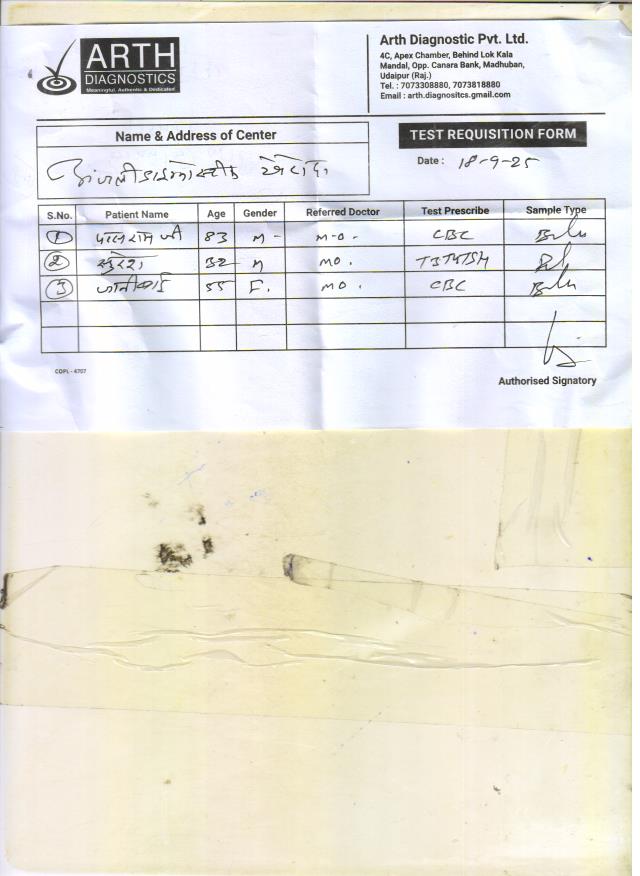 ARTH
DIAGNOSTICS
Meaningful, Authentic & Dedicated
Arth Diagnostic Pvt. Ltd.
4C, Apex Chamber, Behind Lok Kala
Mandal, Opp. Canara Bank, Madhuban,
Udaipur (Raj.)
Tel. : 7073308880, 7073818880
Email : arth.diagnositcs.gmail.com
Name & Address of Center
TEST REQUISITION FORM
Date : 18-9-25
S.No. Patient Name Age Gender Referred Doctor Test Prescribe Sample Type
1 83 M - M-O. CBC
2 32 M MO.
3 55 F. MO. CBC
Authorised Signatory
CDPL - 4707